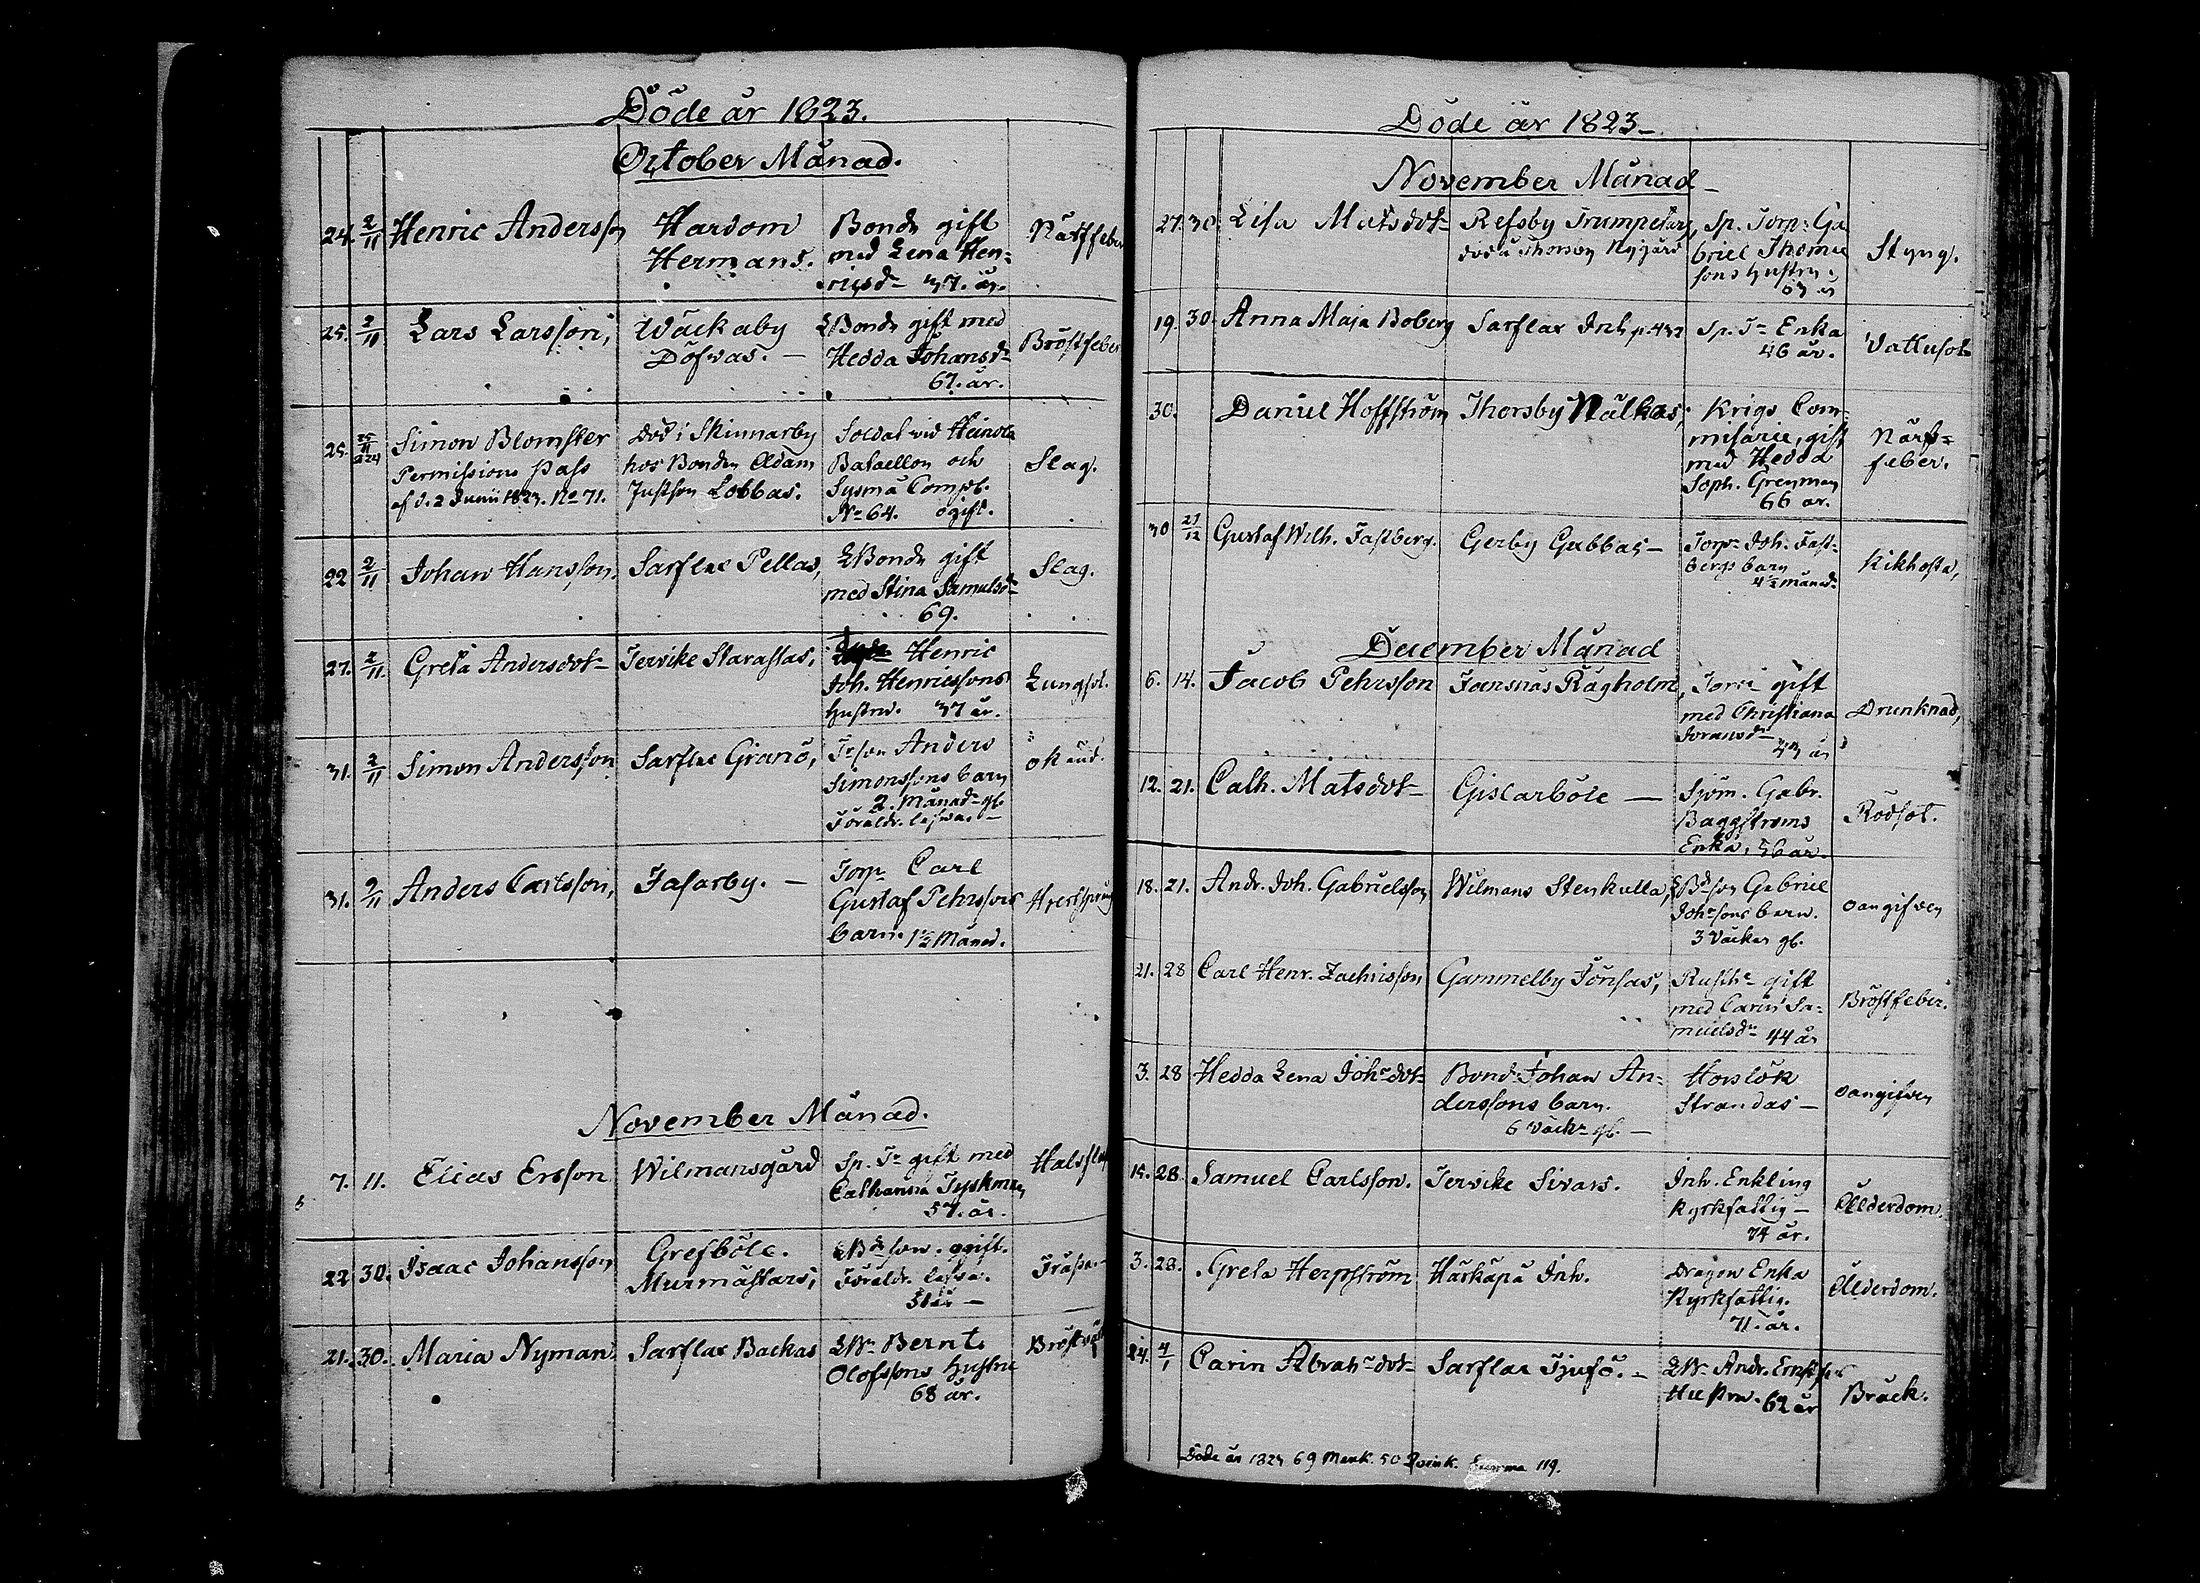 Döde år 1823.
October Månad.
24. 2/11 Henric Andersson Hardom Bonde gift
Hermans. med Lena Hen=
ricsd- 37. år.
25. 2/11 Lars Larsson, Wäckaby LBonde gift med Bröstfeber
Döfvas. — Hedda Johansd-
67. år.
25. Simon Blomster död i Skinnarby Soldat vid Heinola Slag.
Permissions Pass hos Bonden Adam Bataellon och
af d. 2 Junii 1823. No 71. Justson Lobbas. Sysmä Comp.
No 64. ogift.
22 2/11 Johan Hansson, Sarflax Pellas, LBonde gift Slag.
med Stina Samuelsd-
69.
27. 2/11. Greta Andersdot- Jervike Starastas, Henric Lungsot.
Joh. Henricssons
hustru. 37 år.
31. 2/11 Simon Andersson Sarflax Granö, Anders okänd.
Simonssons barn
2. Månad- gl.
Föräldr. lefva. —
31. 9/11 Anders Carlsson, Fasarby. — Torp. Carl
Gustaf Pehrssons
barn. 1½ Månad.
November Månad.
7. 11. Elias Ersson Wilmansgård Sp. Tr gift med
Catharina Tyskman
57. år.
22 30. Isaac Johansson Grefböle. son. ogift.
Murmästars, Föräldr. lefva.
21. 30. Maria Nyman Sarflax Backas LBr Bernt
Olofssons Hustru
68 år.
Döde år 1823—
November Månad—
27. 30. Lisa Matsdot- Refsby Trumpetars, Sp. Torp. Ga Styng.
död å Thorsby Nygård briel Thomæ
sons hustru.
19. 30. Anna Maja Boberg Sarflax Inh. Sp. Tr Enka Vattusot
46 år.
30. Daniel Hoffström Thorsby Nälkas, Krigs Com= Närf=
misarie, gift feber.
med Hedda
Soph. Grenman
66 år.
30 27/12 Gustaf Wilh. Fastberg. Gerby Gubbas— Torpr Joh. Fast= Kikhosta,
bergs barn
4½ månad.
December Månad
6. 14. Jacob Pehrsson Forsnäs Rågholm, gift Drunknad,
med Christiana
12. 21. Cath. Matsdot- Gislarböle — Sjöm. Gabr. Rödsot.
Baggströms
Enka, 56 år.
18. 21. Andr. Joh. Gabrielsson, Wilmans Stenkulla, Gabriel oangifven
barn.
3 väckor gl.
21. 28 Carl Henr. Zachrisson Gammelby Jönsas, gift Bröstfeber.
med Carin Sa=
muelsdr 44 år
3. 28 Hedda Lena Johsdot- Bond. Johan An= Horslök oangifven
derssons barn. Strandas —
6 väckr gl. —
15. 28. Samuel Carlsson. Jervike Sivars. Inh. Enkling Ålderdom.
Kyrkfattig —
74 år.
3. 28. Greta Herpström Härkäpä Inh. Dragon Enka Ålderdom.
Kyrkfattig.
71. år.
24. 4/1 Carin Abrahsdot- Sarflax Tjufö. — Andr. Bråck.
Hustru. 62 år
Döde år 1823 69 Mank. 50 Qvink. Summa 119.